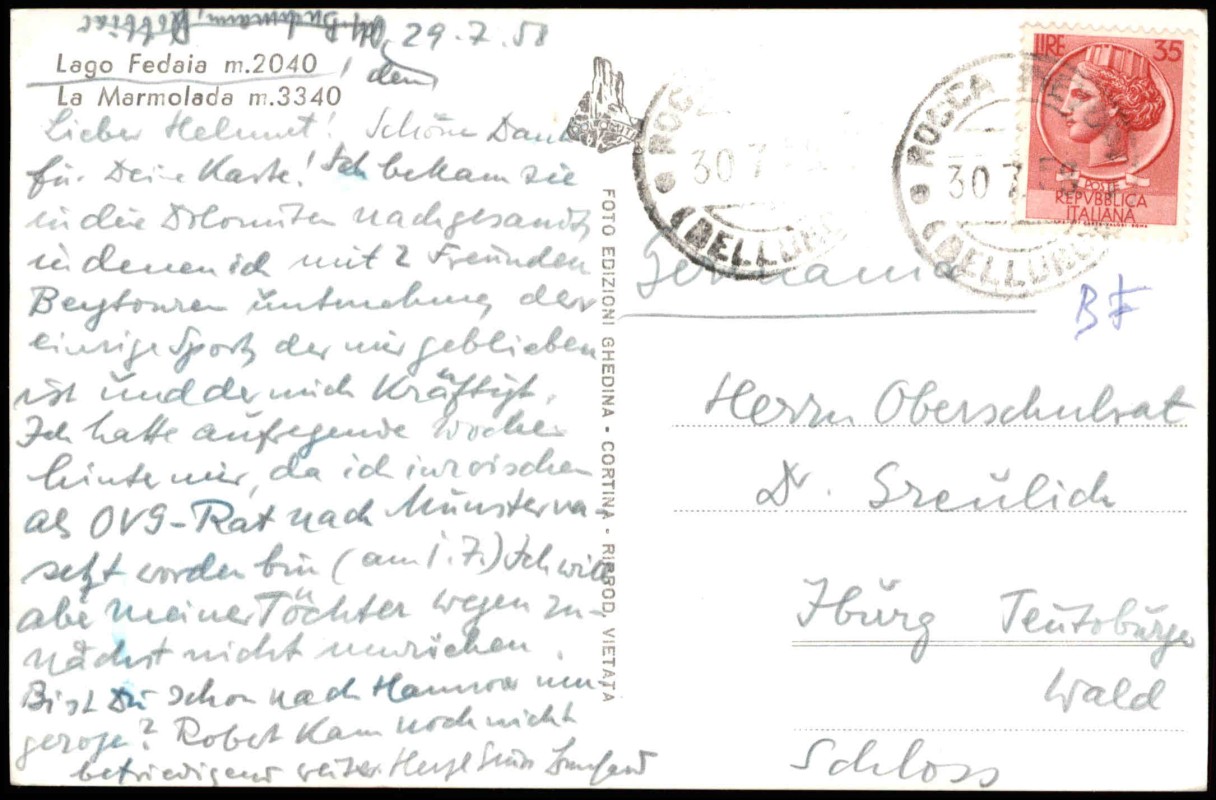 29.7.58
Lago Fedaia m.2040
den
La Marmolada m.3340
Lieber Helmut! Schönen Dank
für Deine Karte! Ich bekam sie
in die Dolomiten nachgesandt,
in denen ich mit 2 Freunden
Bergtouren unternehme, der
einzige Sport, der mir geblieben
ist und der mich kräftigt.
Ich hatte aufregende Wochen
hinter mir, da ich inzwischen
als OVG-Rat nach Münster ver-
setzt worden bin (am 1.7.) Ich will
aber meiner Töchter wegen zu-
nächst nicht umziehen.
Bist Du schon nach Hannover um-
gezogen? Robert kam noch nicht
befriedigend weiter. Herzl.
FOTO EDIZIONI GHEDINA - CORTINA - RIPROD. VIETATA
DOLOMITI
ROCCA
30 7
(BELLUNO)
ROCCA
30 7
(BELLUNO)
LIRE 35
POSTE
REPVBBLICA
ITALIANA
Germania
Herrn Oberschulrat
Dr. Greulich
Iburg Teutoburger
Wald
Schloss